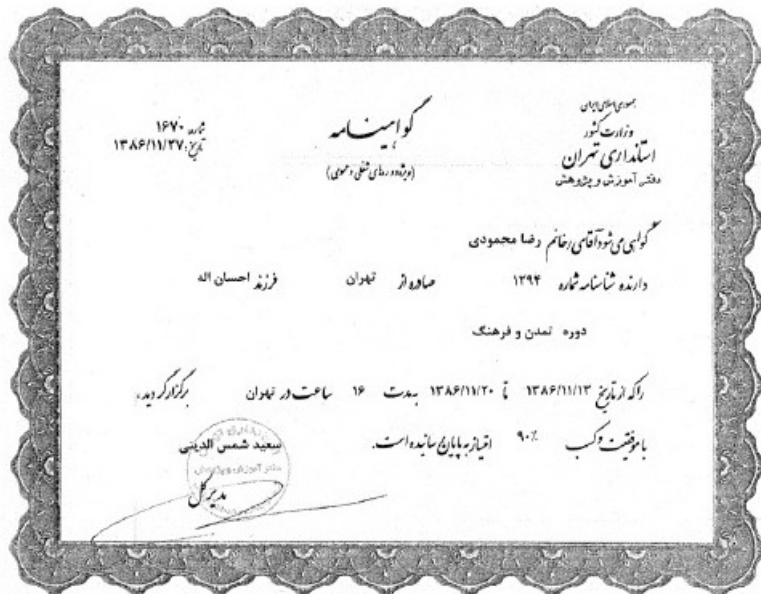 جمهوری اسلامی ایران
وزارت کشور
استانداری تهران
دفتر آموزش و پژوهش
گواهینامه
(ویژه دوره‌های شغلی و عمومی)
شماره: ۱۶۷۰
تاریخ: ۱۳۸۶/۱۱/۲۷
گواهی می شود آقای/خانم رضا محمودی
دارنده شناسنامه شماره ۱۲۹۴ صادره از تهران فرزند احسان اله
دوره تمدن و فرهنگ
را که از تاریخ ۱۳۸۶/۱۱/۱۳ تا ۱۳۸۶/۱۱/۲۰ بمدت ۱۶ ساعت در تهران برگزار گردید،
با موفقیت و کسب ۹۰٪ امتیاز به پایان رسانیده است.
سعید شمس الدینی
دفتر آموزش و پژوهش
مدیر کل